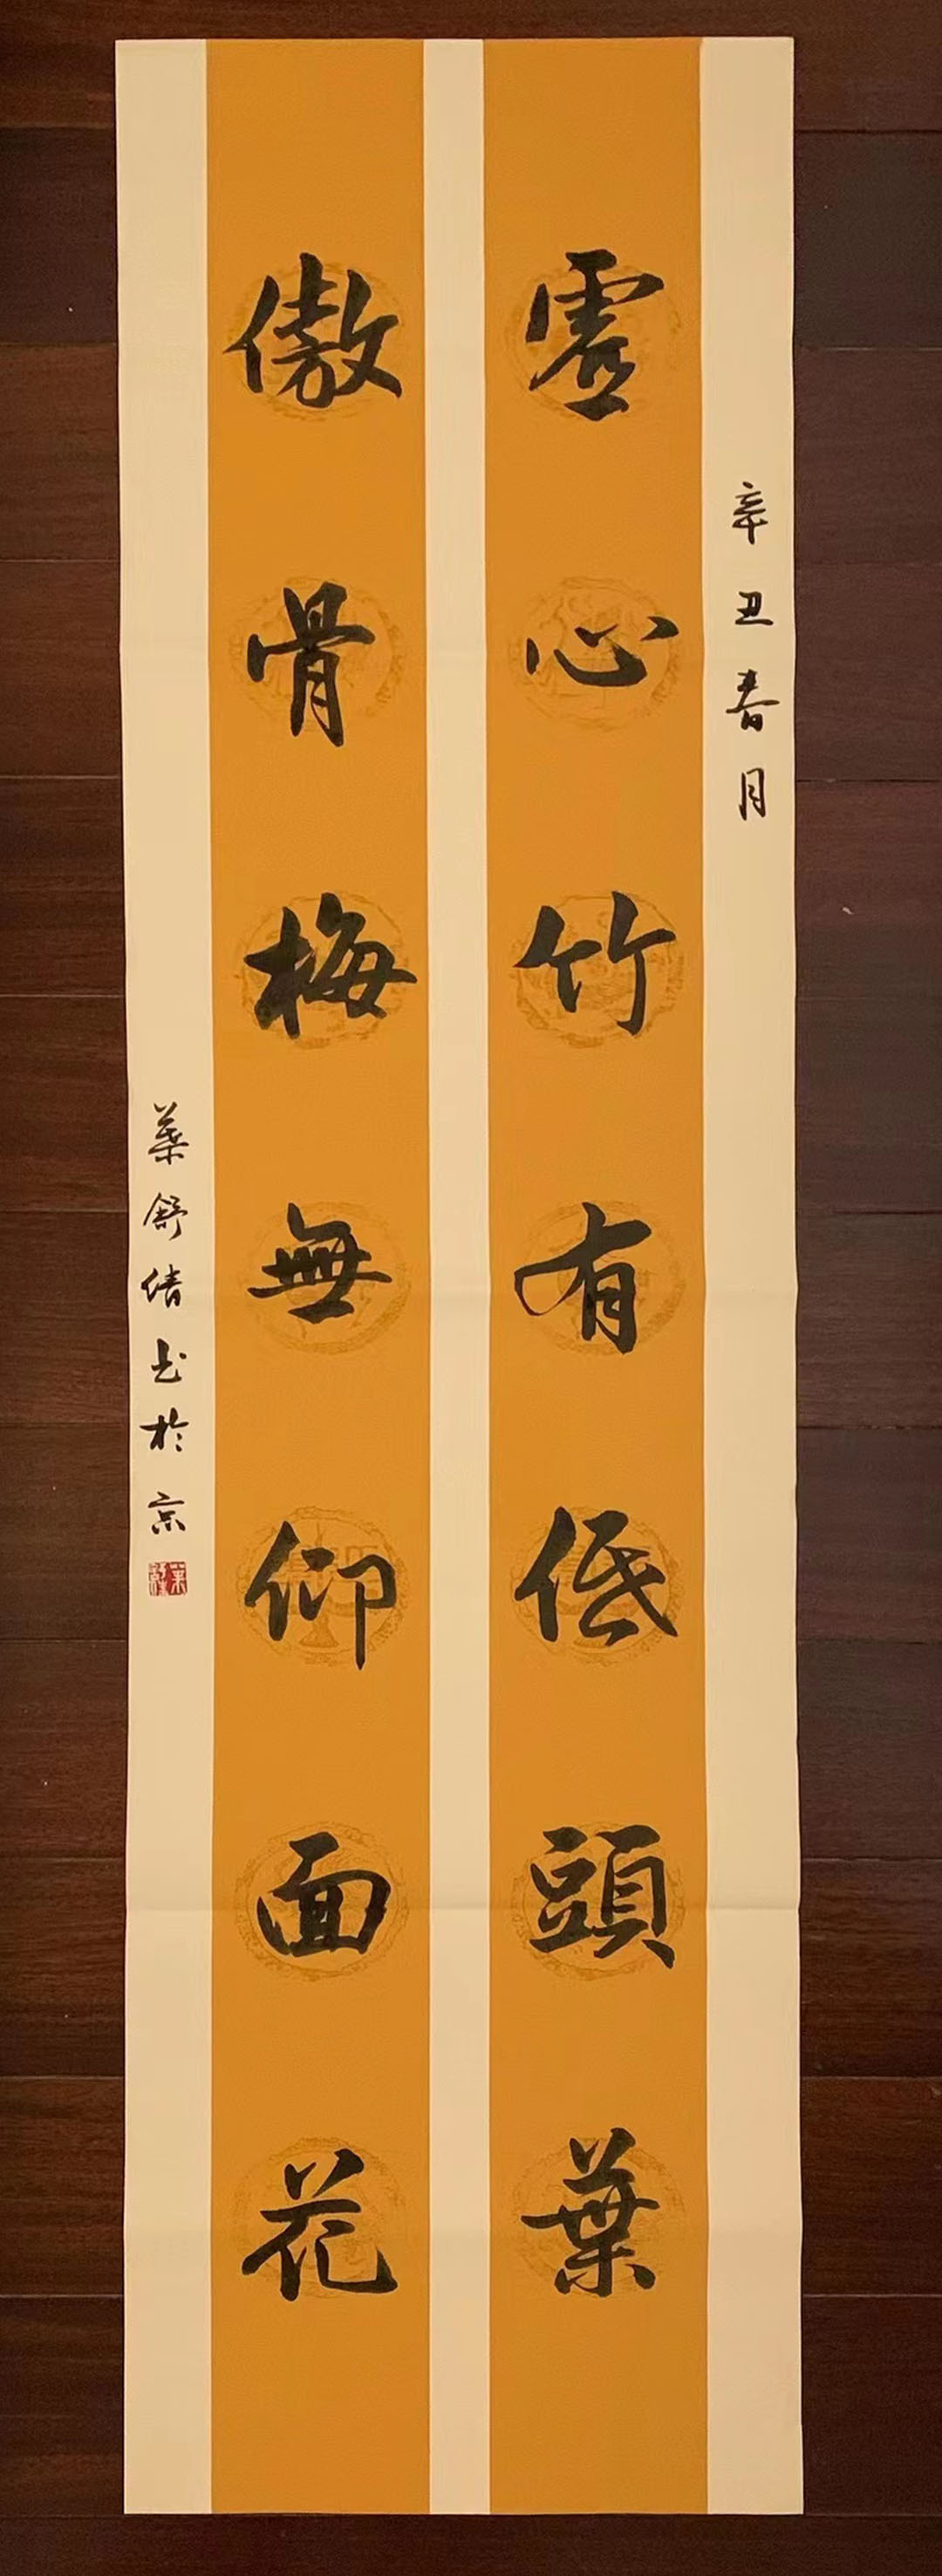 辛丑春月
虛心竹有低頭葉
傲骨梅無仰面花
葉舒倩书於京